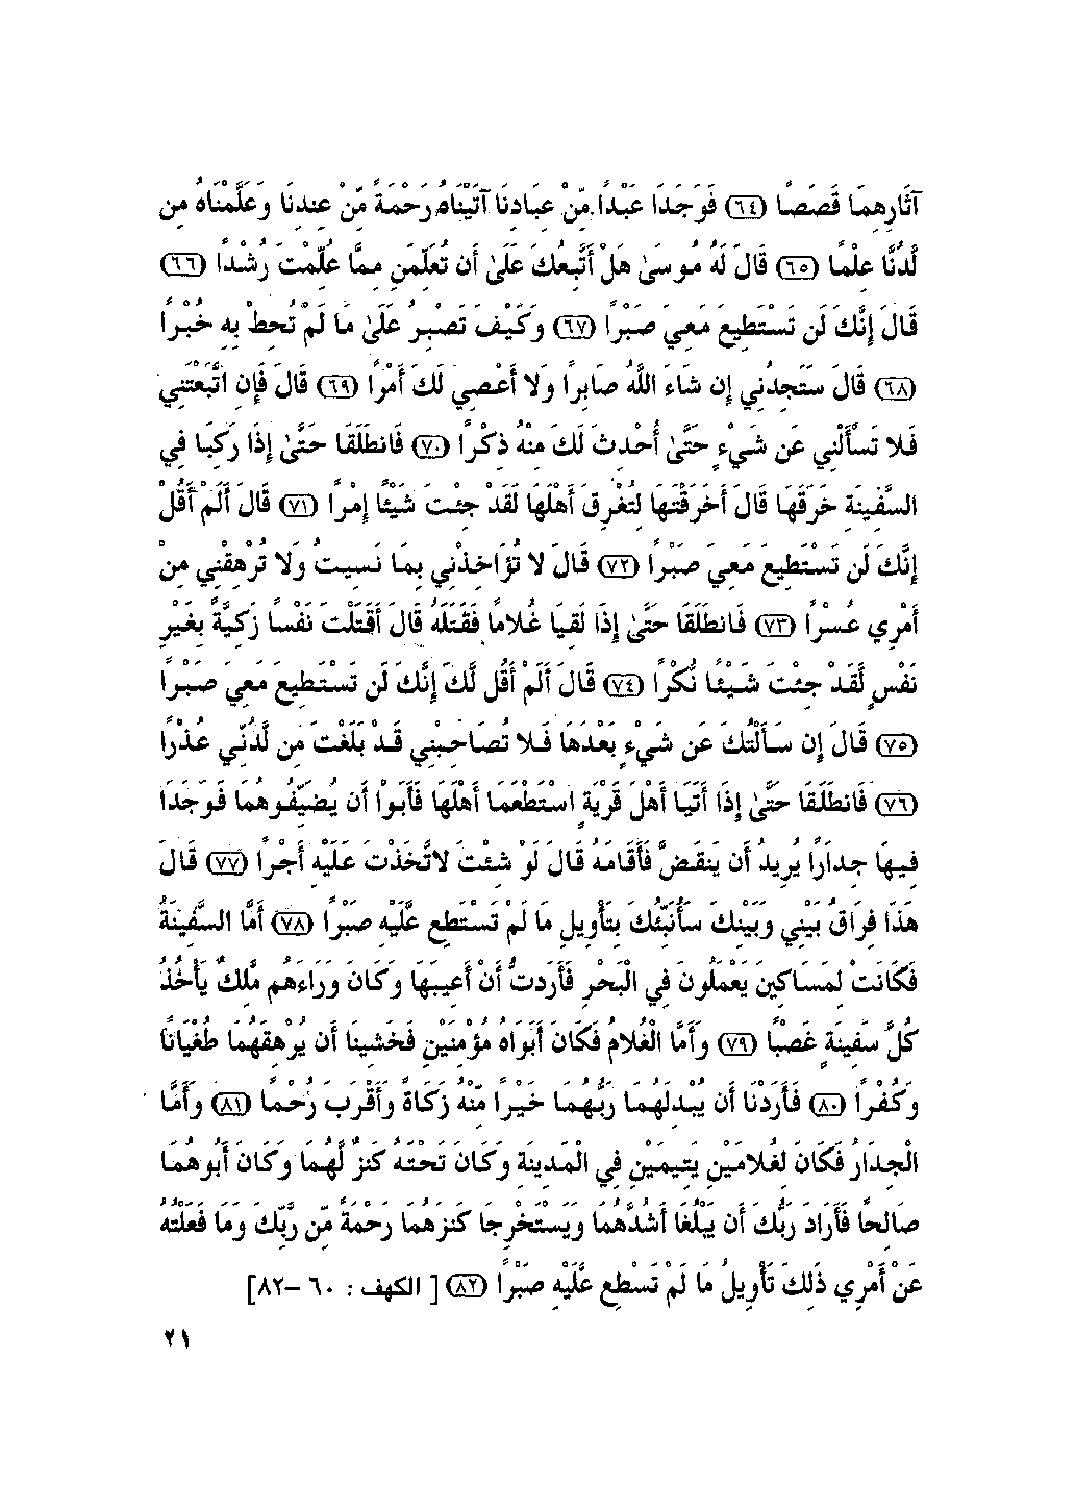 آثَارِهِمَا قَصَصًا (٦٤) فَوَجَدَا عَبْدًا مِّنْ عِبَادِنَا آتَيْنَاهُ رَحْمَةً مِّنْ عِندِنَا وَعَلَّمْنَاهُ مِن
لَّدُنَّا عِلْمًا (٦٥) قَالَ لَهُ مُوسَىٰ هَلْ أَتَّبِعُكَ عَلَىٰ أَن تُعَلِّمَنِ مِمَّا عُلِّمْتَ رُشْدًا (٦٦)
قَالَ إِنَّكَ لَن تَسْتَطِيعَ مَعِيَ صَبْرًا (٦٧) وَكَيْفَ تَصْبِرُ عَلَىٰ مَا لَمْ تُحِطْ بِهِ خُبْرًا
(٦٨) قَالَ سَتَجِدُنِي إِن شَاءَ اللَّهُ صَابِرًا وَلَا أَعْصِي لَكَ أَمْرًا (٦٩) قَالَ فَإِنِ اتَّبَعْتَنِي
فَلا تَسْأَلْنِي عَن شَيْءٍ حَتَّىٰ أُحْدِثَ لَكَ مِنْهُ ذِكْرًا (٧٠) فَانطَلَقَا حَتَّىٰ إِذَا رَكِبَا فِي
السَّفِينَةِ خَرَقَهَا قَالَ أَخَرَقْتَهَا لِتُغْرِقَ أَهْلَهَا لَقَدْ جِئْتَ شَيْئًا إِمْرًا (٧١) قَالَ أَلَمْ أَقُلْ
إِنَّكَ لَن تَسْتَطِيعَ مَعِيَ صَبْرًا (٧٢) قَالَ لا تُؤَاخِذْنِي بِمَا نَسِيتُ وَلا تُرْهِقْنِي مِنْ
أَمْرِي عُسْرًا (٧٣) فَانطَلَقَا حَتَّىٰ إِذَا لَقِيَا غُلامًا فَقَتَلَهُ قَالَ أَقَتَلْتَ نَفْسًا زَكِيَّةً بِغَيْرِ
نَفْسٍ لَّقَدْ جِئْتَ شَيْئًا نُّكْرًا (٧٤) قَالَ أَلَمْ أَقُل لَّكَ إِنَّكَ لَن تَسْتَطِيعَ مَعِيَ صَبْرًا
(٧٥) قَالَ إِن سَأَلْتُكَ عَن شَيْءٍ بَعْدَهَا فَلا تُصَاحِبْنِي قَدْ بَلَغْتَ مِن لَّدُنِّي عُذْرًا
(٧٦) فَانطَلَقَا حَتَّىٰ إِذَا أَتَيَا أَهْلَ قَرْيَةٍ اسْتَطْعَمَا أَهْلَهَا فَأَبَوْا أَن يُضَيِّفُوهُمَا فَوَجَدَا
فِيهَا جِدَارًا يُرِيدُ أَن يَنقَضَّ فَأَقَامَهُ قَالَ لَوْ شِئْتَ لاتَّخَذْتَ عَلَيْهِ أَجْرًا (٧٧) قَالَ
هَذَا فِرَاقُ بَيْنِي وَبَيْنِكَ سَأُنَبِّئُكَ بِتَأْوِيلِ مَا لَمْ تَسْتَطِع عَّلَيْهِ صَبْرًا (٧٨) أَمَّا السَّفِينَةُ
فَكَانَتْ لِمَسَاكِينَ يَعْمَلُونَ فِي الْبَحْرِ فَأَرَدتُّ أَنْ أَعِيبَهَا وَكَانَ وَرَاءَهُم مَّلِكٌ يَأْخُذُ
كُلَّ سَفِينَةٍ غَصْبًا (٧٩) وَأَمَّا الْغُلامُ فَكَانَ أَبَوَاهُ مُؤْمِنَيْنِ فَخَشِينَا أَن يُرْهِقَهُمَا طُغْيَانًا
وَكُفْرًا (٨٠) فَأَرَدْنَا أَن يُبْدِلَهُمَا رَبُّهُمَا خَيْرًا مِّنْهُ زَكَاةً وَأَقْرَبَ رُحْمًا (٨١) وَأَمَّا
الْجِدَارُ فَكَانَ لِغُلامَيْنِ يَتِيمَيْنِ فِي الْمَدِينَةِ وَكَانَ تَحْتَهُ كَنزٌ لَّهُمَا وَكَانَ أَبُوهُمَا
صَالِحًا فَأَرَادَ رَبُّكَ أَن يَبْلُغَا أَشُدَّهُمَا وَيَسْتَخْرِجَا كَنزَهُمَا رَحْمَةً مِّن رَّبِّكَ وَمَا فَعَلْتُهُ
عَنْ أَمْرِي ذَلِكَ تَأْوِيلُ مَا لَمْ تَسْطِع عَّلَيْهِ صَبْرًا (٨٢) [الكهف : ٦٠ –٨٢]
٢١